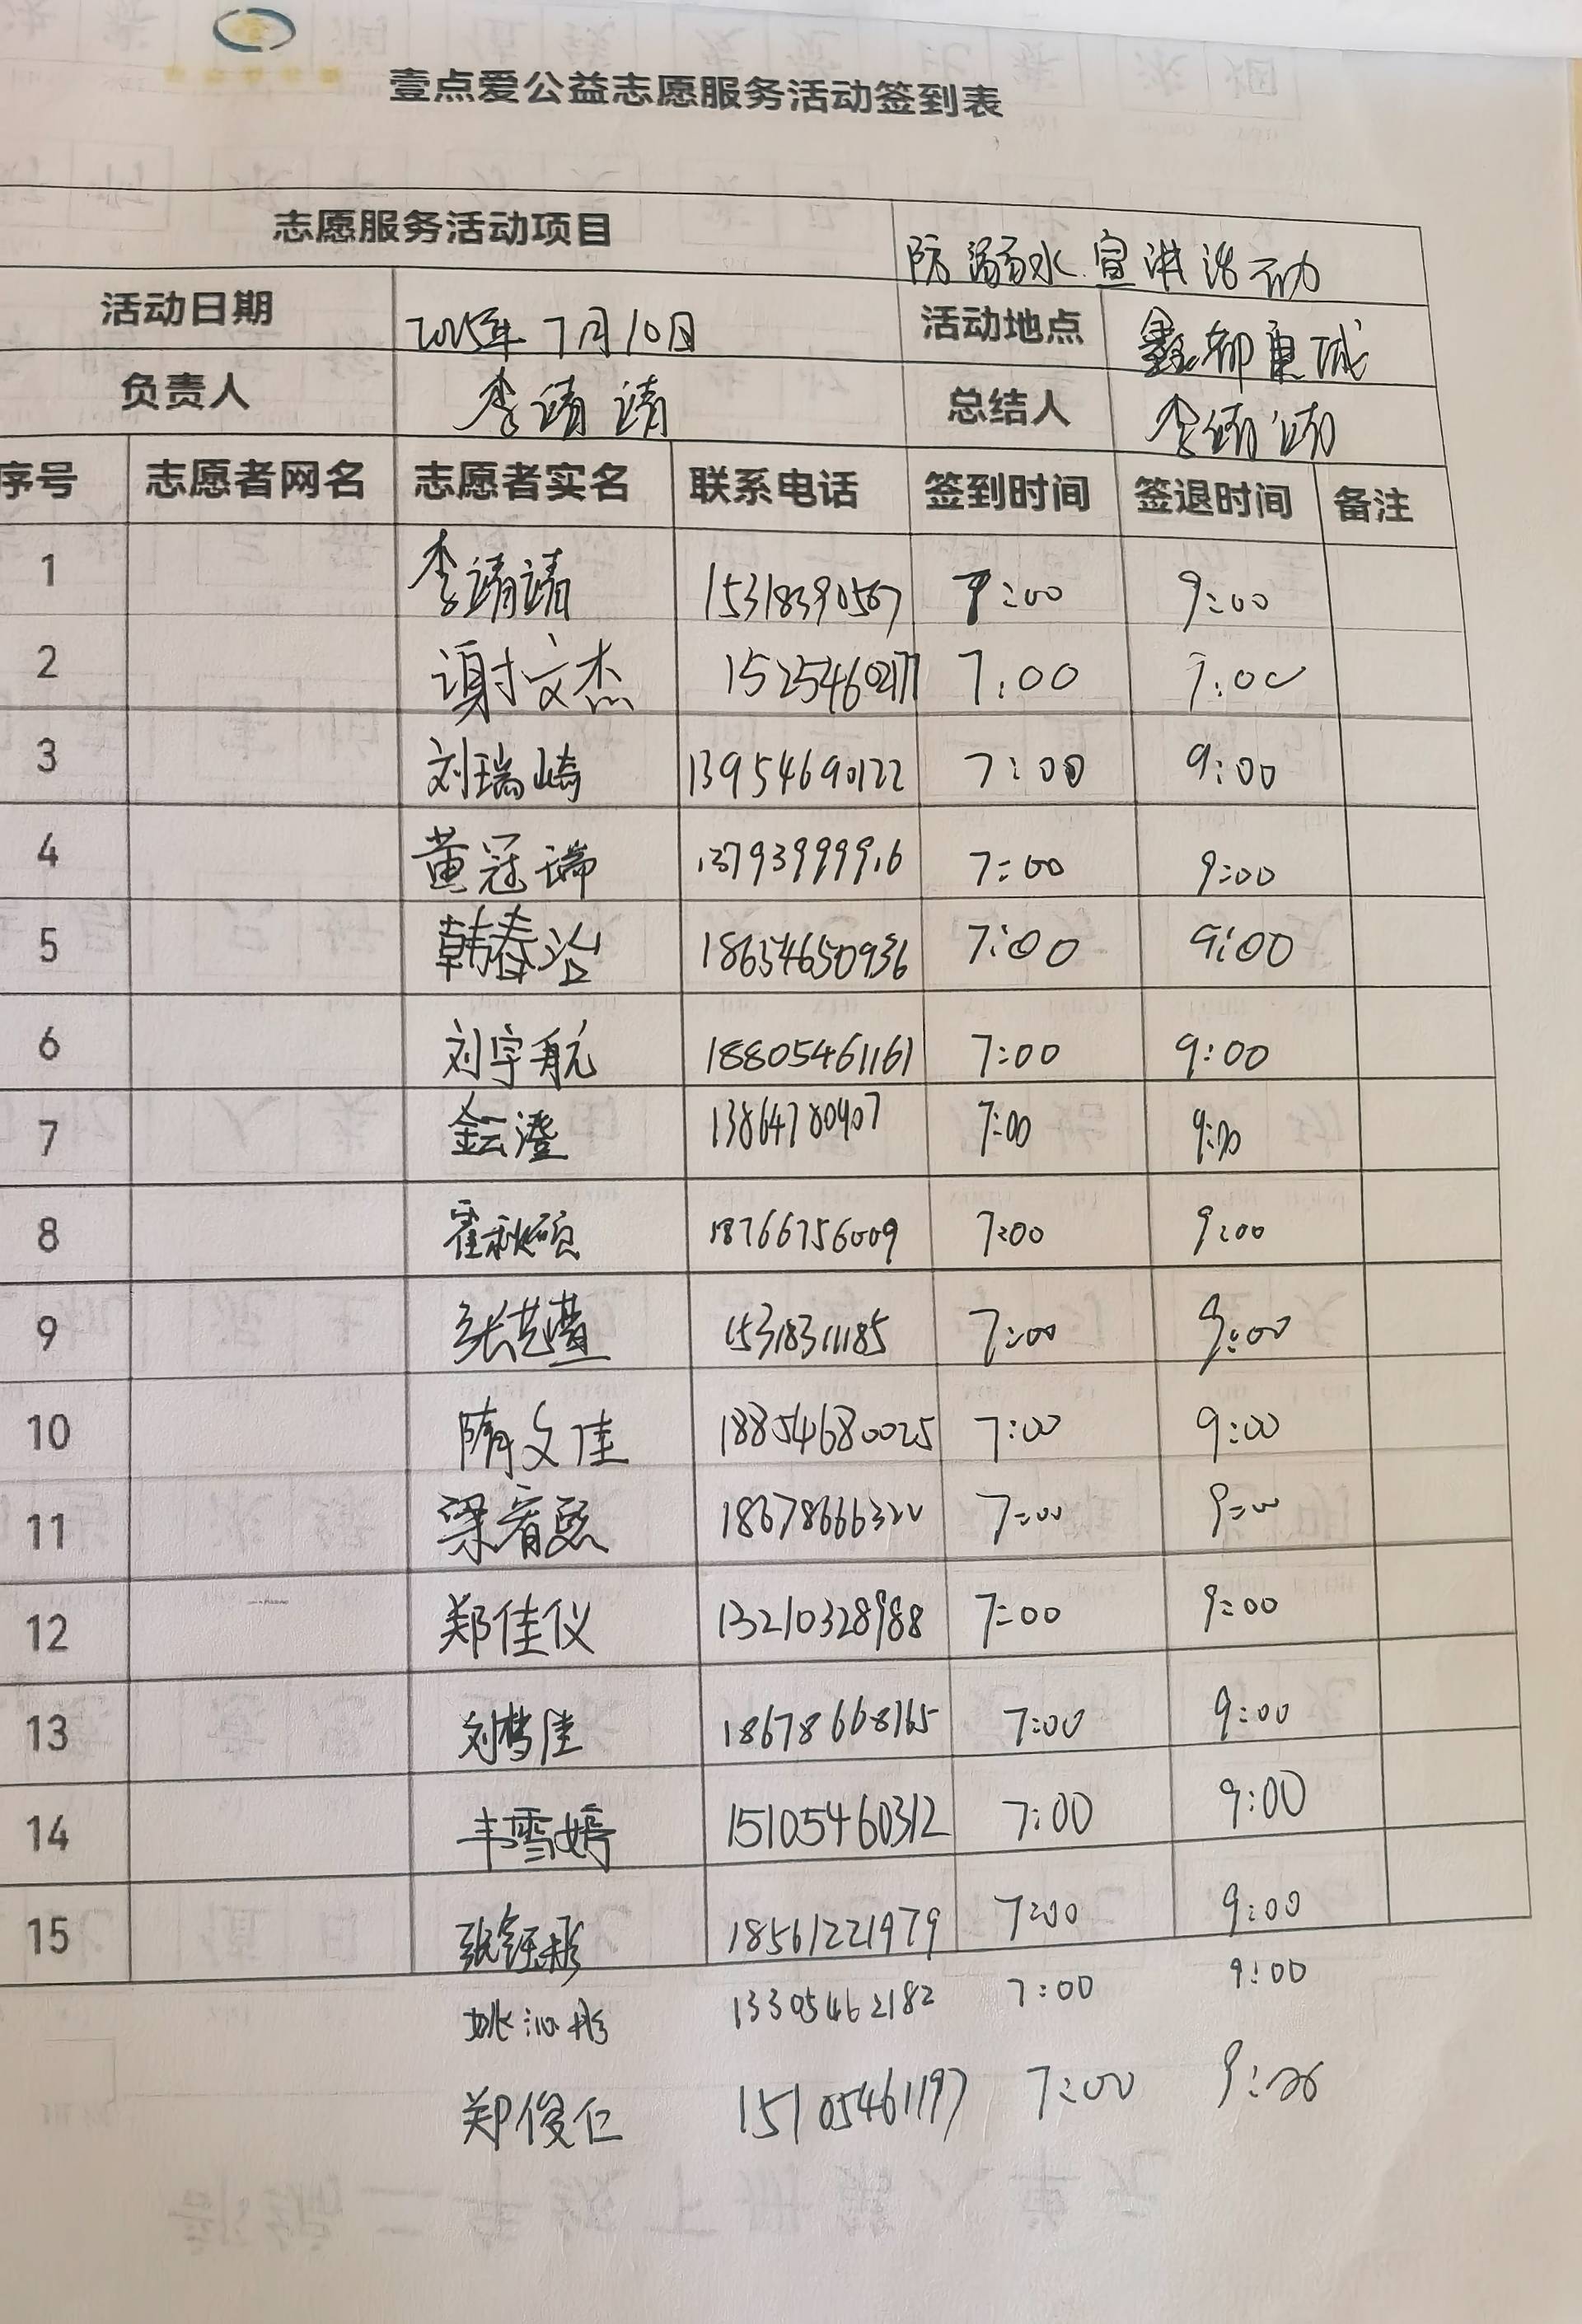 壹点爱公益志愿服务活动签到表
志愿服务活动项目 防溺水宣讲活动
活动日期 2025年7月10日 活动地点 鑫都東城
负责人 李靖靖 总结人 李靖靖
序号 志愿者网名 志愿者实名 联系电话 签到时间 签退时间 备注
1 李靖靖 15318390567 7:00 9:00
2 谢文杰 7:00 9:00
3 刘瑞崎 13954690122 7:00 9:00
4 黄冠瑞 13793999916 7:00 9:00
5 韩春治 18654650936 7:00 9:00
6 刘宇航 18805461161 7:00 9:00
7 澄 13864780407 7:00 9:00
8 霍秋硕 18766756009 7:00 9:00
9 张艺 15318311185 7:00 9:00
10 隋文佳 18854680025 7:00 9:00
11 梁宥熙 18678666322 7:00 9:00
12 郑佳仪 13210328988 7:00 9:00
13 刘梦佳 18678668165 7:00 9:00
14 丰雪婷 15105460312 7:00 9:00
15 张钰彤 18561221979 7:00 9:00
姚沁彤 13305462182 7:00 9:00
郑俊仁 15105461197 7:00 9:00